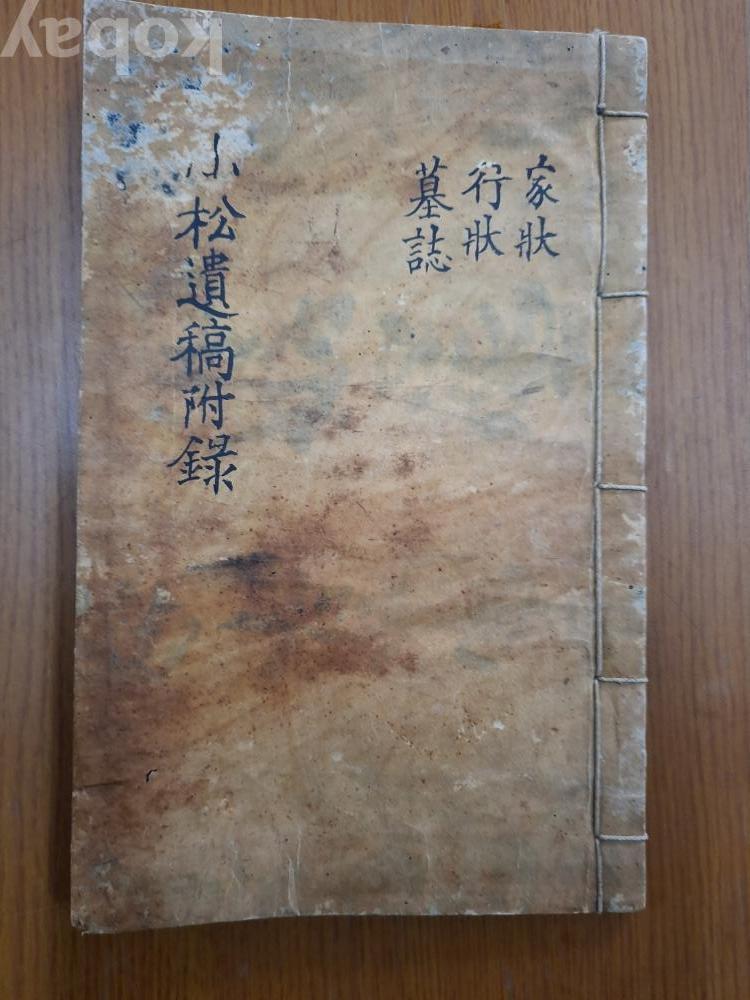 家狀
行狀
墓誌
小松遺稿附錄
kobay